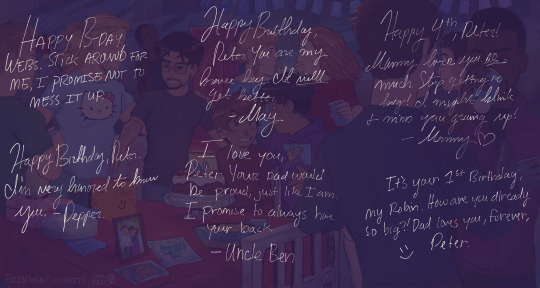 HAPPY B-DAY
WEBS. STICK AROUND FOR
ME, I PROMISE NOT TO
MESS IT UP.
Happy Birthday, Peter.
I'm very honored to know
you. - Pepper.
Happy Birthday,
Peter. You are my
brave boy. It'll
get better.
- May
I love you,
Peter. Your Dad would
be proud, just like I am.
I promise to always have
your back
- Uncle Ben
Happy 4th, Peter!
Mommy loves you so
much. Stop getting so
big! I might blink
& miss you growing up!
- Mommy ♡
It's your 1st Birthday,
my Robin. How are you already
so big?! Dad loves you, forever,
Peter.